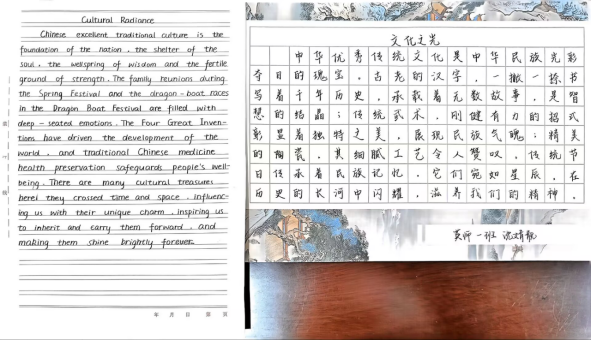 Cultural Radiance
Chinese excellent traditional culture is the
foundation of the nation, the shelter of the
soul, the wellspring of wisdom and the fertile
ground of strength. The family reunions during
the Spring Festival and the dragon-boat races
in the Dragon Boat Festival are filled with
deep-seated emotions. The Four Great Inven-
tions have driven the development of the
world, and traditional Chinese medicine
health preservation safeguards people's well-
being. There are many cultural treasures
here; they crossed time and space, influenc-
ing us with their unique charm, inspiring us
to inherit and carry them forward, and
making them shine brightly forever.
年 月 日
文化之光
中华优秀传统文化是中华民族光彩
夺目的瑰宝,古老的汉字,一撇一捺书
写着千年历史,承载着无数故事,是智
慧的结晶;传统武术,刚健有力的招式
彰显着独特之美,展现民族气魄;精美
的陶瓷,其细腻工艺令人赞叹,传统节
日传承着民族记忆,它们宛如星辰,在
历史的长河中闪耀,滋养我们的精神。
一班